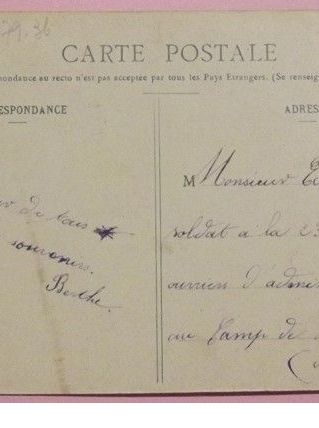 CARTE POSTALE
ondance au recto n'est pas acceptée par tous les Pays Etrangers. (Se renseig
ESPONDANCE
ADRES
de tous
souvenirs.
Berthe.
M Monsieur
soldat à la 2
ouvriers d'admin
au Camp de